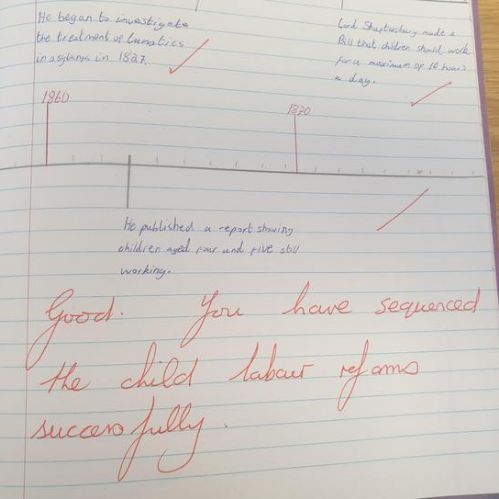 He began to investigate
the treatment of lunatics
in asylums in 1827.
Lord Shaftesbury made a
Bill that children should work
for a maximum of 10 hours
a day.
1860
1870
He published a report showing
children aged four and five still
working.
Good. You have sequenced
the child labour reforms
successfully.